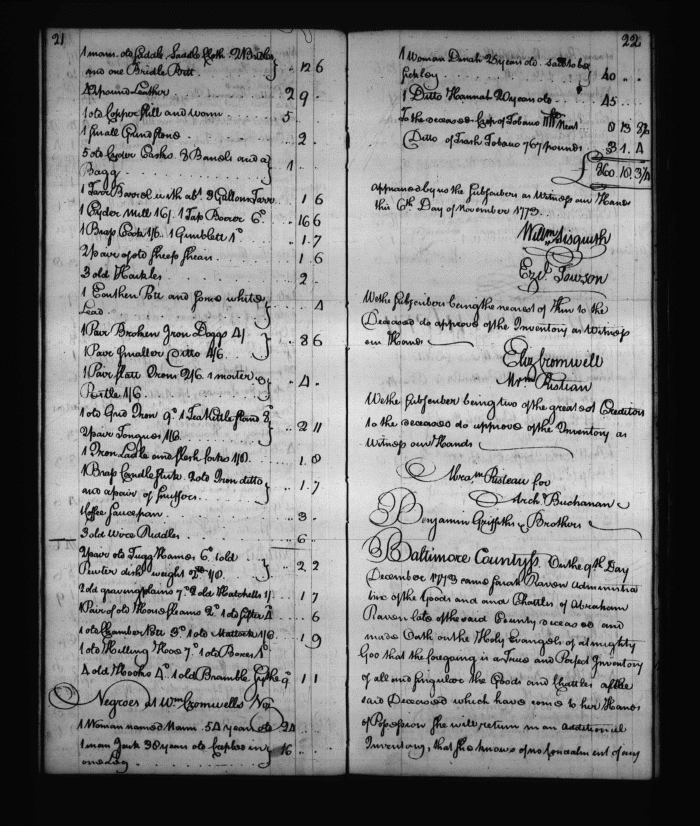 21
1 mans old Saddle Saddle Cloth 2 Bridles
and one Bridle Bitt 12 6
42 pound Leather 2 9
1 old Copper Still and worm 5
1 Small Grindstone 2
5 old Cyder Casks 3 Barrels and a
Bagg 1
1 Tarr Barrel with abt. 3 Gallons Tarr 1 6
1 Cyder Mill 16/. 1 Tap Borer 6d. 16 6
1 Brass Cock 1/6. 1 Gimblett 1d. 1.7
2 pair of old Sheep Shears 1 6
3 old Hackles 2
1 Earthen Pott and some white
Lead 4
1 Pair Broken Iron Doggs 4/
1 Pair Smaller Ditto 4/6 8 6
1 Pair flatt Irons 2/6. 1 morter &
Pestle 1/6 4
1 old Grid Iron 9d. 1 Tea Kettle stand
2 pair Tongues 1/8 2 11
1 Iron Ladle and flesh forks 1/8 1 8
1 Brass Candlestick 2 old Iron ditto
and a pair of Snuffers 1.7
1 Coffee Saucepan 3
3 old Wire Riddles 6
2 pair old Tugg Hames 6d. 1 old
Pewter dish weight 1/8 2 2
2 old graving plains 7d. 2 old Hatchells 1/. 1 7
1 Pair of old Horse fleams 2d. 1 old Sifter 4d. 6
1 old Chamber Pott 3d. 1 old Mattock 1/6 1 9
1 old Hilling Hoe 7d. 1 old Box 1d.
4 old Hooks 4d. 1 old Bramble Sythe 9d 1 1
Negroes at Wm. Cromwells Viz
1 Woman named Nann 54 years old 24
1 man Jack 38 years old Cripled in
one Leg 16
22
1 Woman Dinah 25 years old said to be
Sickley 40
1 Ditto Hannah 20 years old 45
To the deceased Crop of Tobaco Neat 0 13 8½
Ditto of Trash Tobaco 767 pounds 3 1. 4
360 10. 3¾
appraised by us the Subscribers as Witness our Hands
this 6th Day of November 1773
Willm. Sisquish
Ezel. Towson
We the Subscribers being the nearest of Kin to the
Deceased do approve of the Inventory as Witness
our Hands
Eliz. Cromwell
Wm. Risteau
We the Subscribers being two of the greatest Creditors
to the deceased do approve of the Inventory as
Witness our Hands
Abram. Risteau for
Archd. Buchanan
Benjamin Griffith & Brothers
Baltimore County Ss. On the 9th Day
December 1773 came Sarah Raven Administra
trix of the Goods and and Chattles of Abraham
Raven late of the said County deceased and
made Oath on the Holy Evangels of almighty
God that the foregoing is a True and Perfect Inventory
of all and singular the Goods and Chattles of the
said Deceased which have come to her Hands
or Possession She will return in an Additional
Inventory, that she knows of no Concealment of any